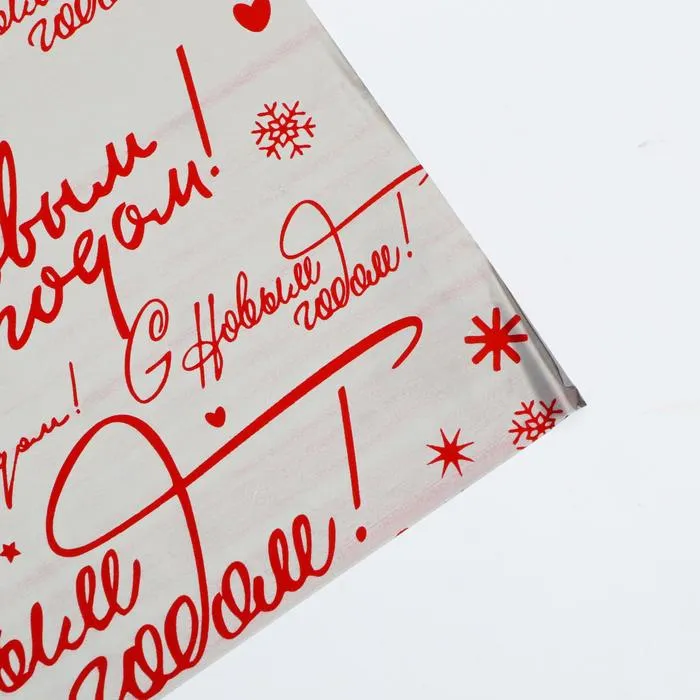 годом
овым
годом!
С Новым
годом!
дом!
овым
годом!